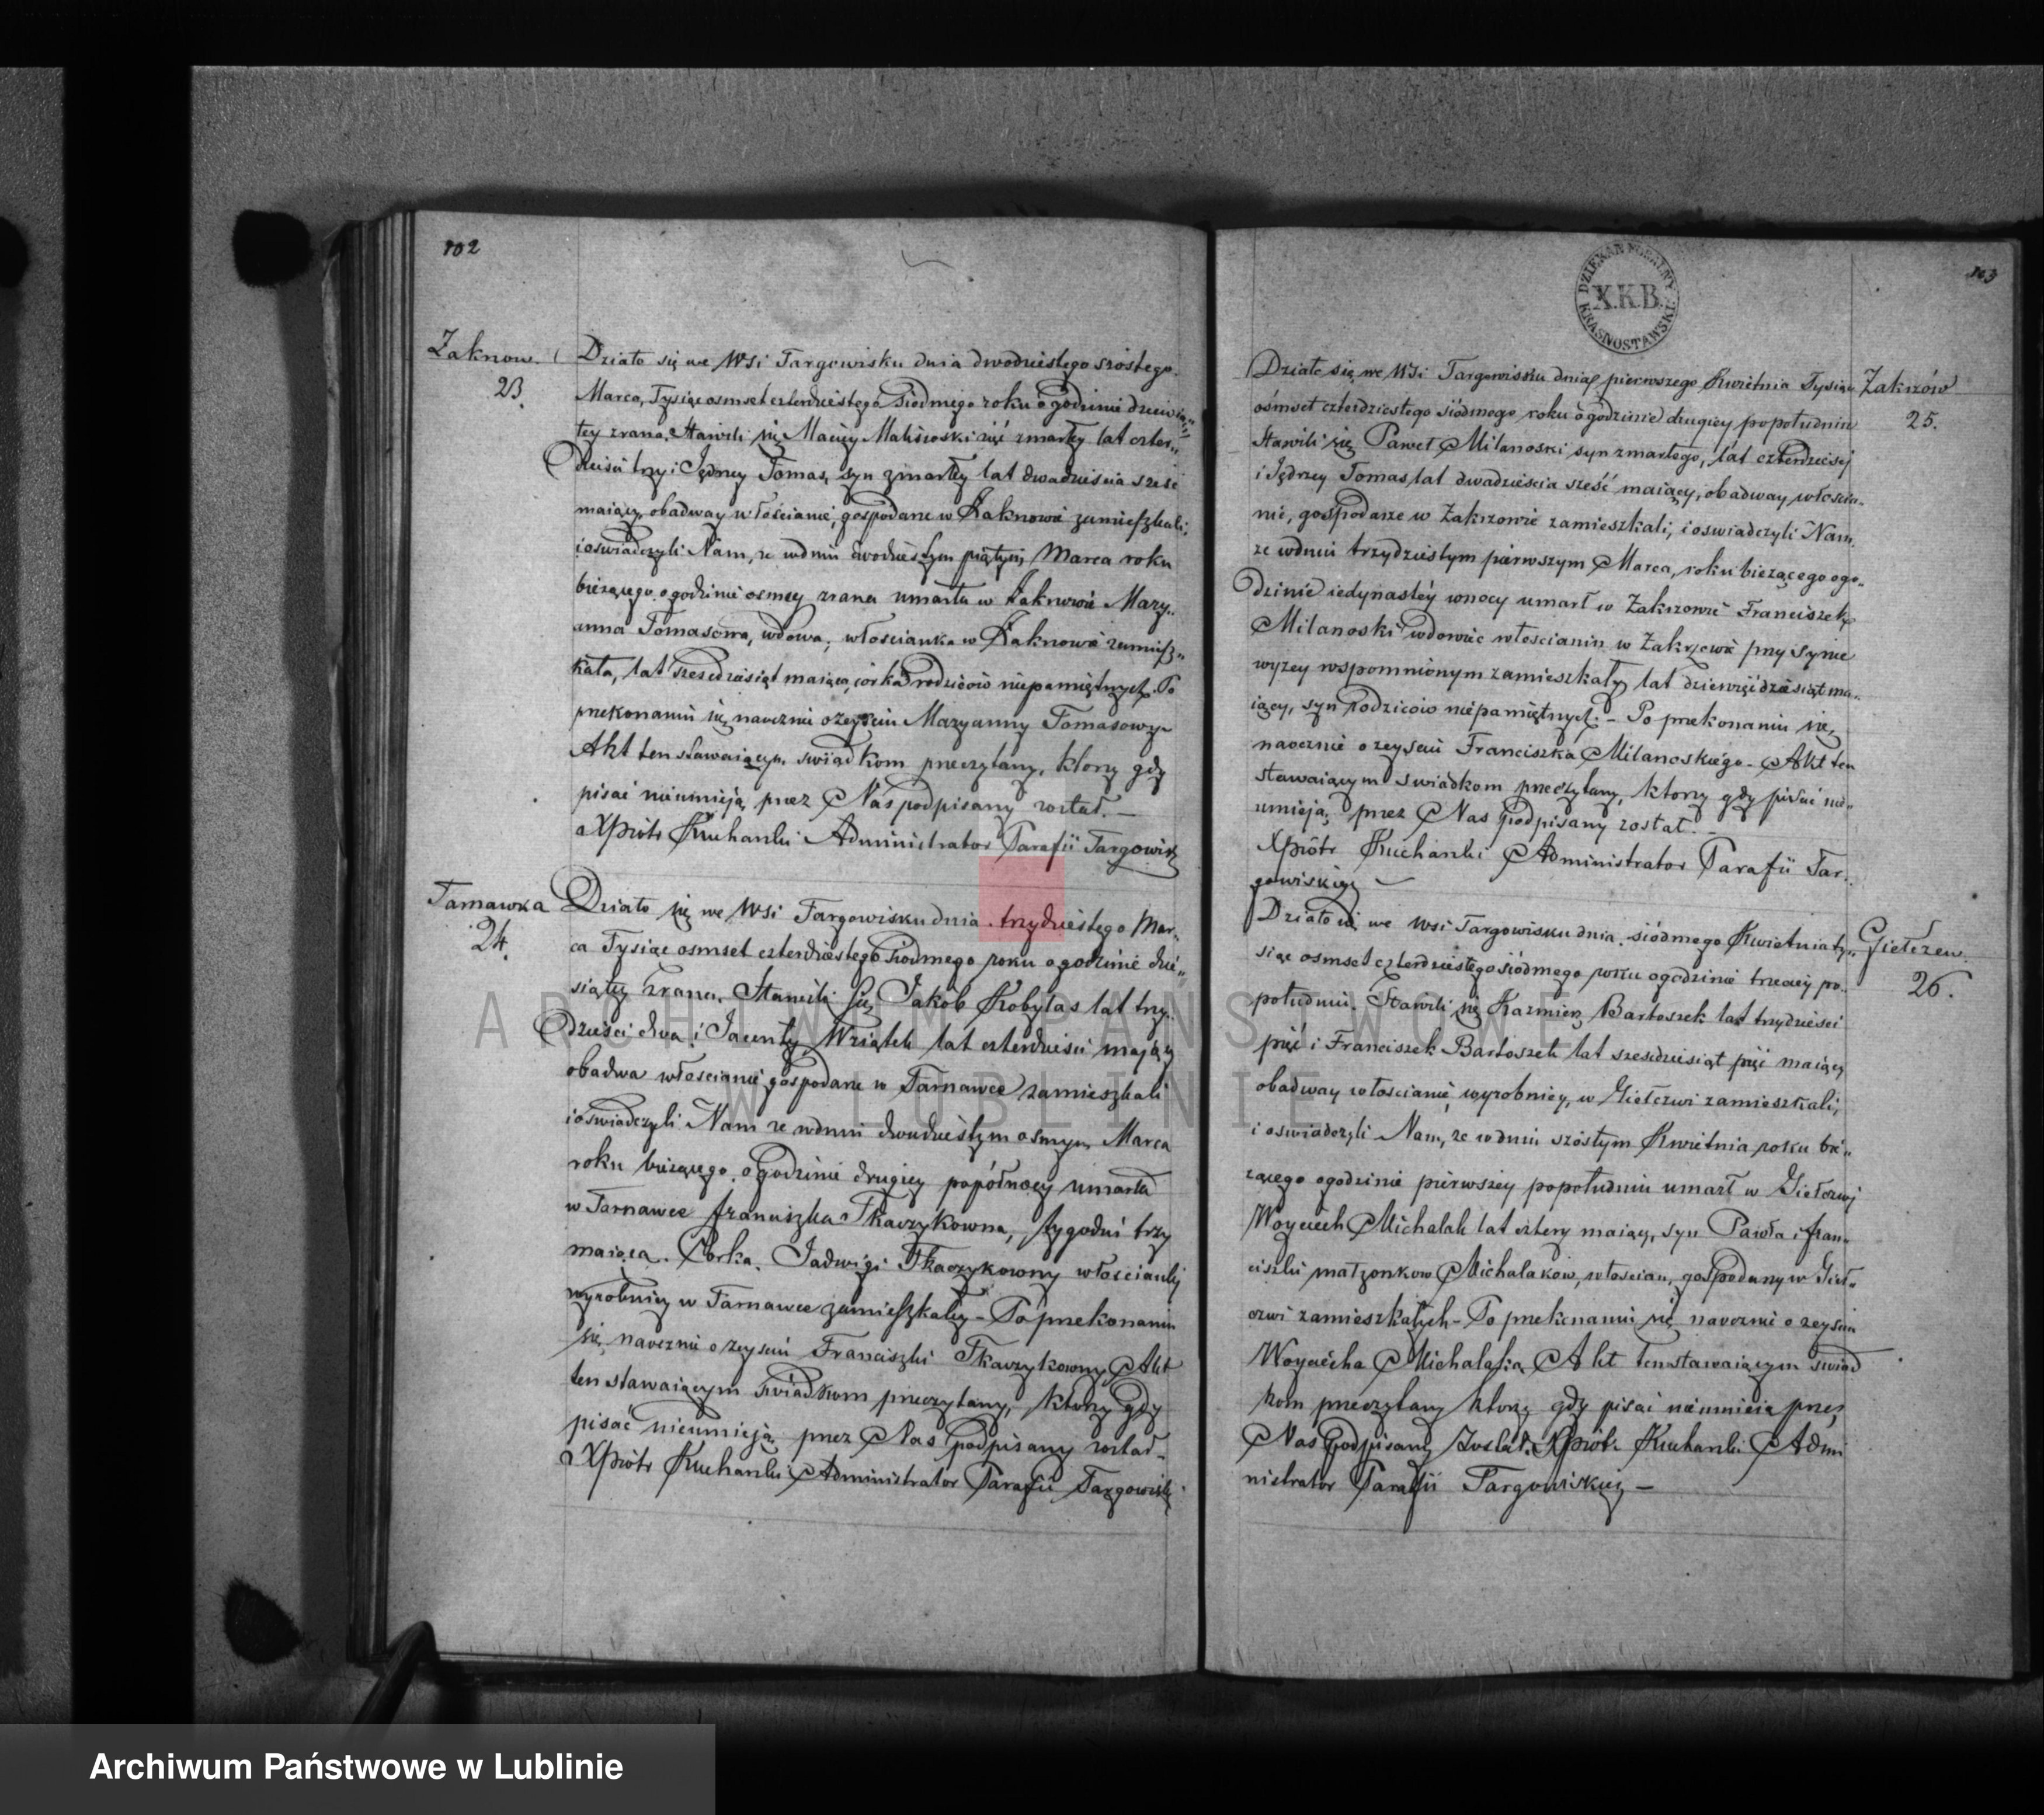 102
Zaknow.
23.
Działo się we Wsi Targowisku dnia dwodziestego szostego
Marca, Tysiąc osmset czterdziestego Siodmego roku o godzinie dziewią„
tey zrana, Stawili się Maciey Malisoski zić zmarły lat czter„
dzieści trzy i Jędrzey Tomas, syn zmarłey lat dwadzieścia sześć
maiący, obadway włościanie, gospodarze w Zaknowie zamieszkali,
i oswiadczyli Nam, ze w dniu dwodziestym piątym Marca roku
bieżącego, o godzinie osmey zrana umarła w Zaknowie Mary„
anna Tomasowa, wdowa, włościanka w Zaknowie zamiesz„
kała, lat sześdziesiąt maiąca, córka rodziców niepamiętnych. Po
przekonaniu się naocznie o zeyściu Maryanny Tomasowy
Akt ten stawaiącym swiadkom przeczytany, ktory gdy
pisać nieumieją przez Nas podpisany został. —
X Piotr Kucharski Administrator Parafii Targowisk
Tarnawka
24.
Działo się we Wsi Targowisku dnia trzydziestego Mar„
ca Tysiąc osmset czterdziestego Siodmego roku o godzinie dzie„
siątey zrana. Stawili się Jakób Kobylas lat trzy„
dzieści dwa i Jacenty Wziątek lat czterdzieści mający
obadwa włościanie gospodarze w Tarnawce zamieszkali
i oświadczyli Nam ze w dniu dwudziestym osmym Marca
roku bieżącego o godzinie drugiey popółnocy umarła
w Tarnawce Franciszka Tkaczykowna, tygodni trzy
maiąca. Córka Jadwigi Tkaczykowny włościanki
wyrobnicy w Tarnawce zamieszkałey – Po przekonaniu
się naocznie o zeyściu Franciszki Tkaczykowny Akt
ten stawaiącym świadkom przeczytany, ktory gdy
pisać nieumieją przez Nas podpisany został –
X Piotr Kucharski Administrator Parafii Targowisk
103
DZIEKAN FORALNY KRASNOSTAWSKI
X.K.B.
Zakrzów
25.
Działo się we Wsi Targowisku dnia pierwszego Kwietnia Tysiąc
ośmset czterdziestego siódmego roku o godzinie drugiey popołudniu
Stawili się Paweł Milanoski syn zmarłego, lat czterdzieści
i Jędrzey Tomas lat dwadzieścia sześć maiący, obadway włościa„
nie, gospodarze w Zakrzowie zamieszkali, i oswiadczyli Nam
ze w dniu trzydziestym pierwszym Marca, roku bieżącego o go„
dzinie iedynastéy w nocy umarł w Zakrzowie Franciszek
Milanoski wdowiec włościanin w Zakrzowie przy Synie
wyzey wspomnionym zamieszkały lat dziewięćdziesiąt ma„
iący, syn rodziców niepamiętnych. – Po przekonaniu się
naocznie o zeyściu Franciszka Milanoskiego – Akt ten
stawaiącym swiadkom przeczytany, ktory gdy pisać nie„
umieją, przez Nas Podpisany został. –
X Piotr Kucharski Administrator Parafii Tar„
gowiskiey –
Giełczew.
26.
Działo się we Wsi Targowisku dnia siódmego Kwietnia ty„
siąc osmset czterdziestego siódmego roku o godzinie trzeciey po
południu. Stawili się Kazmierz Bartoszek lat trzydzieści
pięć i Franciszek Bartoszek lat sześcdziesiąt pięć maiący
obadway włościanie, wyrobnicy, w Giełczwi zamieszkali,
i oswiadczyli Nam, ze w dniu szóstym Kwietnia roku bie„
zącego o godzinie pierwszey popołudniu umarł w Giełczwi
Woyciech Michalak lat cztery maiący, syn Pawła i Fran„
ciszki małzonkow Michalakow, włościan, gospodarzy w Gieł„
czwi zamieszkałych – Po przekonaniu się naocznie o zeyściu
Woyciecha Michalaka Akt ten stawaiącym swiad
kom przeczytany ktory gdy pisać nieumieia przez
Nas Podpisany Został. X Piotr Kucharski Admi
nistrator Parafii Targowiskiey –
ARCHIWUM PAŃSTWOWE
W LUBLINIE
Archiwum Państwowe w Lublinie